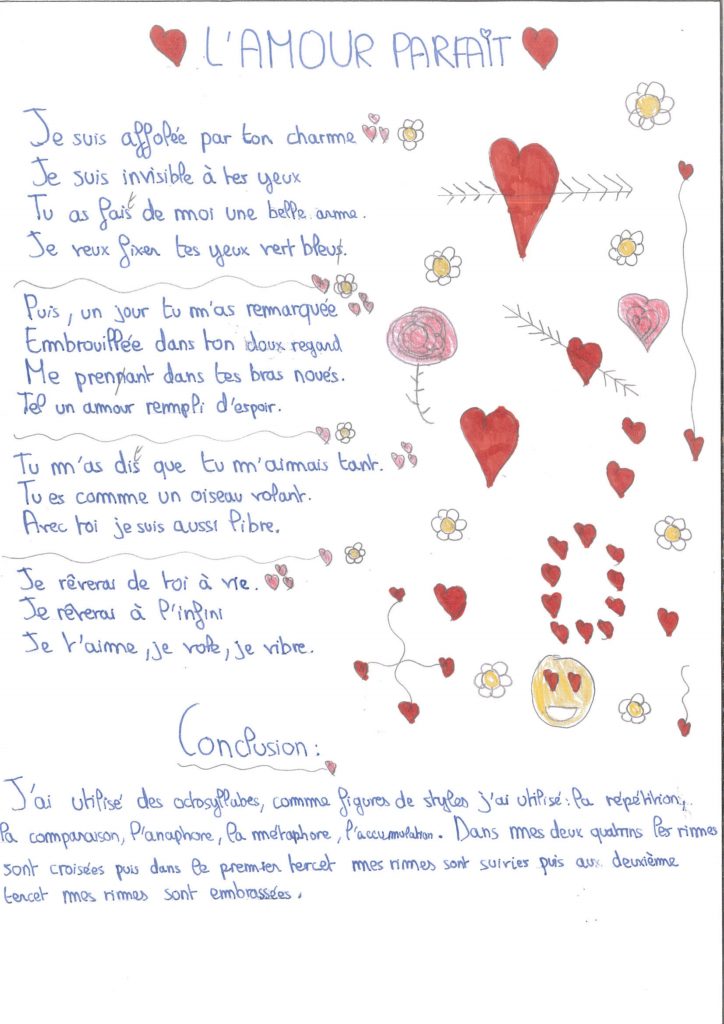 L'AMOUR PARFAIT
Je suis affolée par ton charme
Je suis invisible à tes yeux
Tu as fait de moi une belle arme.
Je veux fixer tes yeux vert bleus.
Puis, un jour tu m'as remmarquée
Embrouillée dans ton doux regard
Me prennant dans tes bras noués.
Tel un amour rempli d'espoir.
Tu m'as dit que tu m'aimais tant.
Tu es comme un oiseau volant.
Avec toi je suis aussi libre.
Je rêverai de toi à vie.
Je rêverai à l'infini
Je t'aime, je vole, je vibre.
Conclusion :
J'ai utilisé des octosyllabes, comme figures de styles j'ai utilisé : la répétition,
la comparaison, l'anaphore, la métaphore, l'accumulation. Dans mes deux quatrins les rimes
sont croisées puis dans le premier tercet mes rimes sont suivies puis aux deuxième
tercet mes rimes sont embrassées.